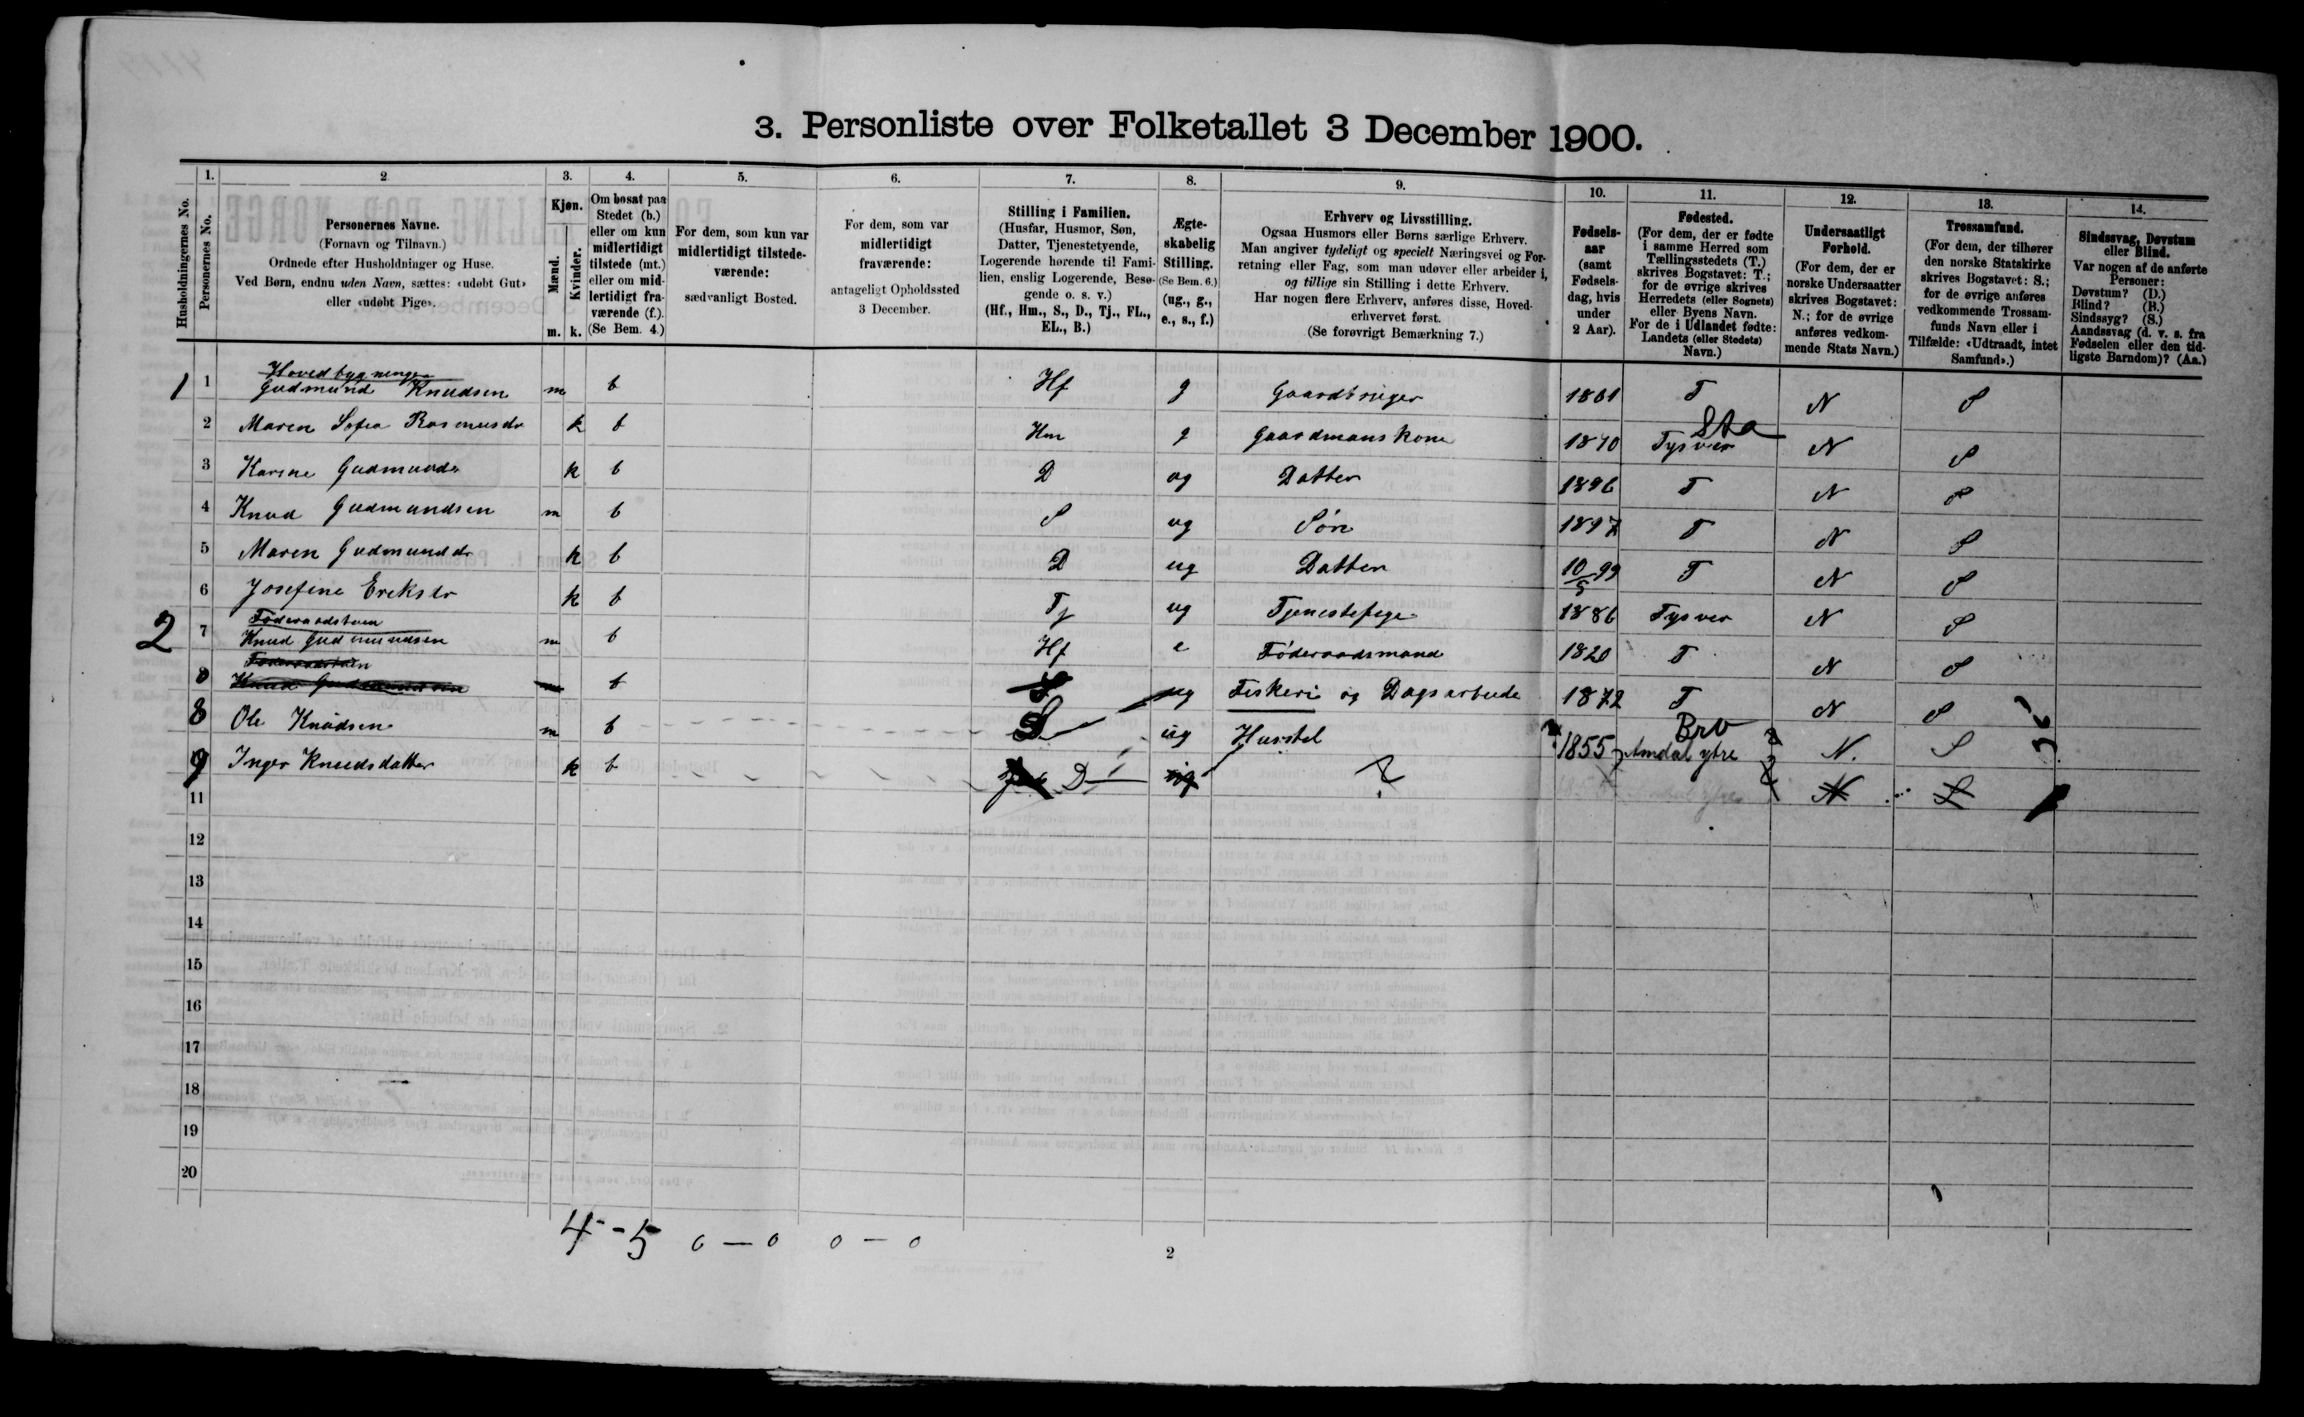 3. Personliste over Folketallet 3 December 1900.
Husholdningernes No.
1. Personernes No.
2
Personernes Navne.
(Fornavn og Tilnavn.)
Ordnede efter Husholdninger og Huse.
Ved Børn, endnu uden Navn, sættes: «udøbt Gut»
eller «udøbt Pige».
3.
Kjøn.
Mænd.
Kvinder.
m. k.
4.
Om bosat paa
Stedet (b.)
eller om kun
midlertidigt
tilstede (mt.)
eller om mid-
lertidigt fra-
værende (f.).
(Se Bem. 4.)
5.
For dem, som kun var
midlertidigt tilstede-
værende:
sædvanligt Bosted.
6.
For dem, som var
midlertidigt
fraværende:
antageligt Opholdssted
3 December.
7.
Stilling i Familien.
(Husfar, Husmor, Søn,
Datter, Tjenestetyende,
Logerende hørende til Fami-
lien, enslig Logerende, Besø-
gende o. s. v.)
(Hf., Hm., S., D., Tj., FL.,
EL., B.)
8.
Ægte-
skabelig
Stilling.
(Se Bem. 6.)
(ug., g.,
e., s., f.)
9.
Erhverv og Livsstilling.
Ogsaa Husmors eller Børns særlige Erhverv.
Man angiver tydeligt og specielt Næringsvei og For-
retning eller Fag, som man udøver eller arbeider i,
og tillige sin Stilling i dette Erhverv.
Har nogen flere Erhverv, anføres disse, Hoved-
erhvervet først.
(Se forøvrigt Bemærkning 7.)
10.
Fødsels-
aar
(samt
Fødsels-
dag, hvis
under
2 Aar).
11.
Fødested.
(For dem, der er fødte
i samme Herred som
Tællingsstedets (T.)
skrives Bogstavet: T.;
for de øvrige skrives
Herredets (eller Sognets)
eller Byens Navn.
For de i Udlandet fødte:
Landets (eller Stedets)
Navn.)
12.
Undersaatligt
Forhold.
(For dem, der er
norske Undersaatter
skrives Bogstavet:
N.; for de øvrige
anføres vedkom-
mende Stats Navn.)
13.
Trossamfund.
(For dem, der tilhører
den norske Statskirke
skrives Bogstavet: S.;
for de øvrige anføres
vedkommende Trossam-
funds Navn eller i
Tilfælde: «Udtraadt, intet
Samfund».)
14.
Sindssvag, Døvstum
eller Blind.
Var nogen af de anførte
Personer:
Døvstum? (D.)
Blind? (B.)
Sindssyg? (S.)
Aandssvag (d. v. s. fra
Fødselen eller den tid-
ligste Barndom)? (Aa.)
Hovedbygningen
1 1 Gudmund Knudsen m b Hf g Gaardbruger 1861 T N S
2 Maren Sofia Rasmusdr k b Hm g Gaardmanskone 1870 Tysvær Sta N S
3 Karine Gudmunds k b D ug Datter 1896 T N S
4 Knud Gudmundsen m b S ug Søn 1897 T N S
5 Maren Gudmundsdr k b D ug Datter 10/5 99 T N S
6 Josefine Eriksdr k b Tj ug Tjenestepige 1886 Tysvær N S
Föderaadstuen
2 7 Knud Gudmundsen m b Hf e Föderaadsmand 1820 T N S
Föderaadstuen
8 Knud Gudmundsen m b S ug Fiskeri og Dagsarbeide 1872 T N S
8 Ole Knudsen m b S ug Husstel 1855 Amdal ytre Bro N. S
9 Inger Knudsdatter k b D ug ? N S
11
12
13
14
15
16
17
18
19
20
4 - 5 0 — 0 0 — 0
2